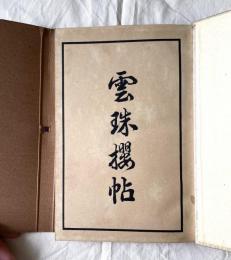 雲珠櫻帖